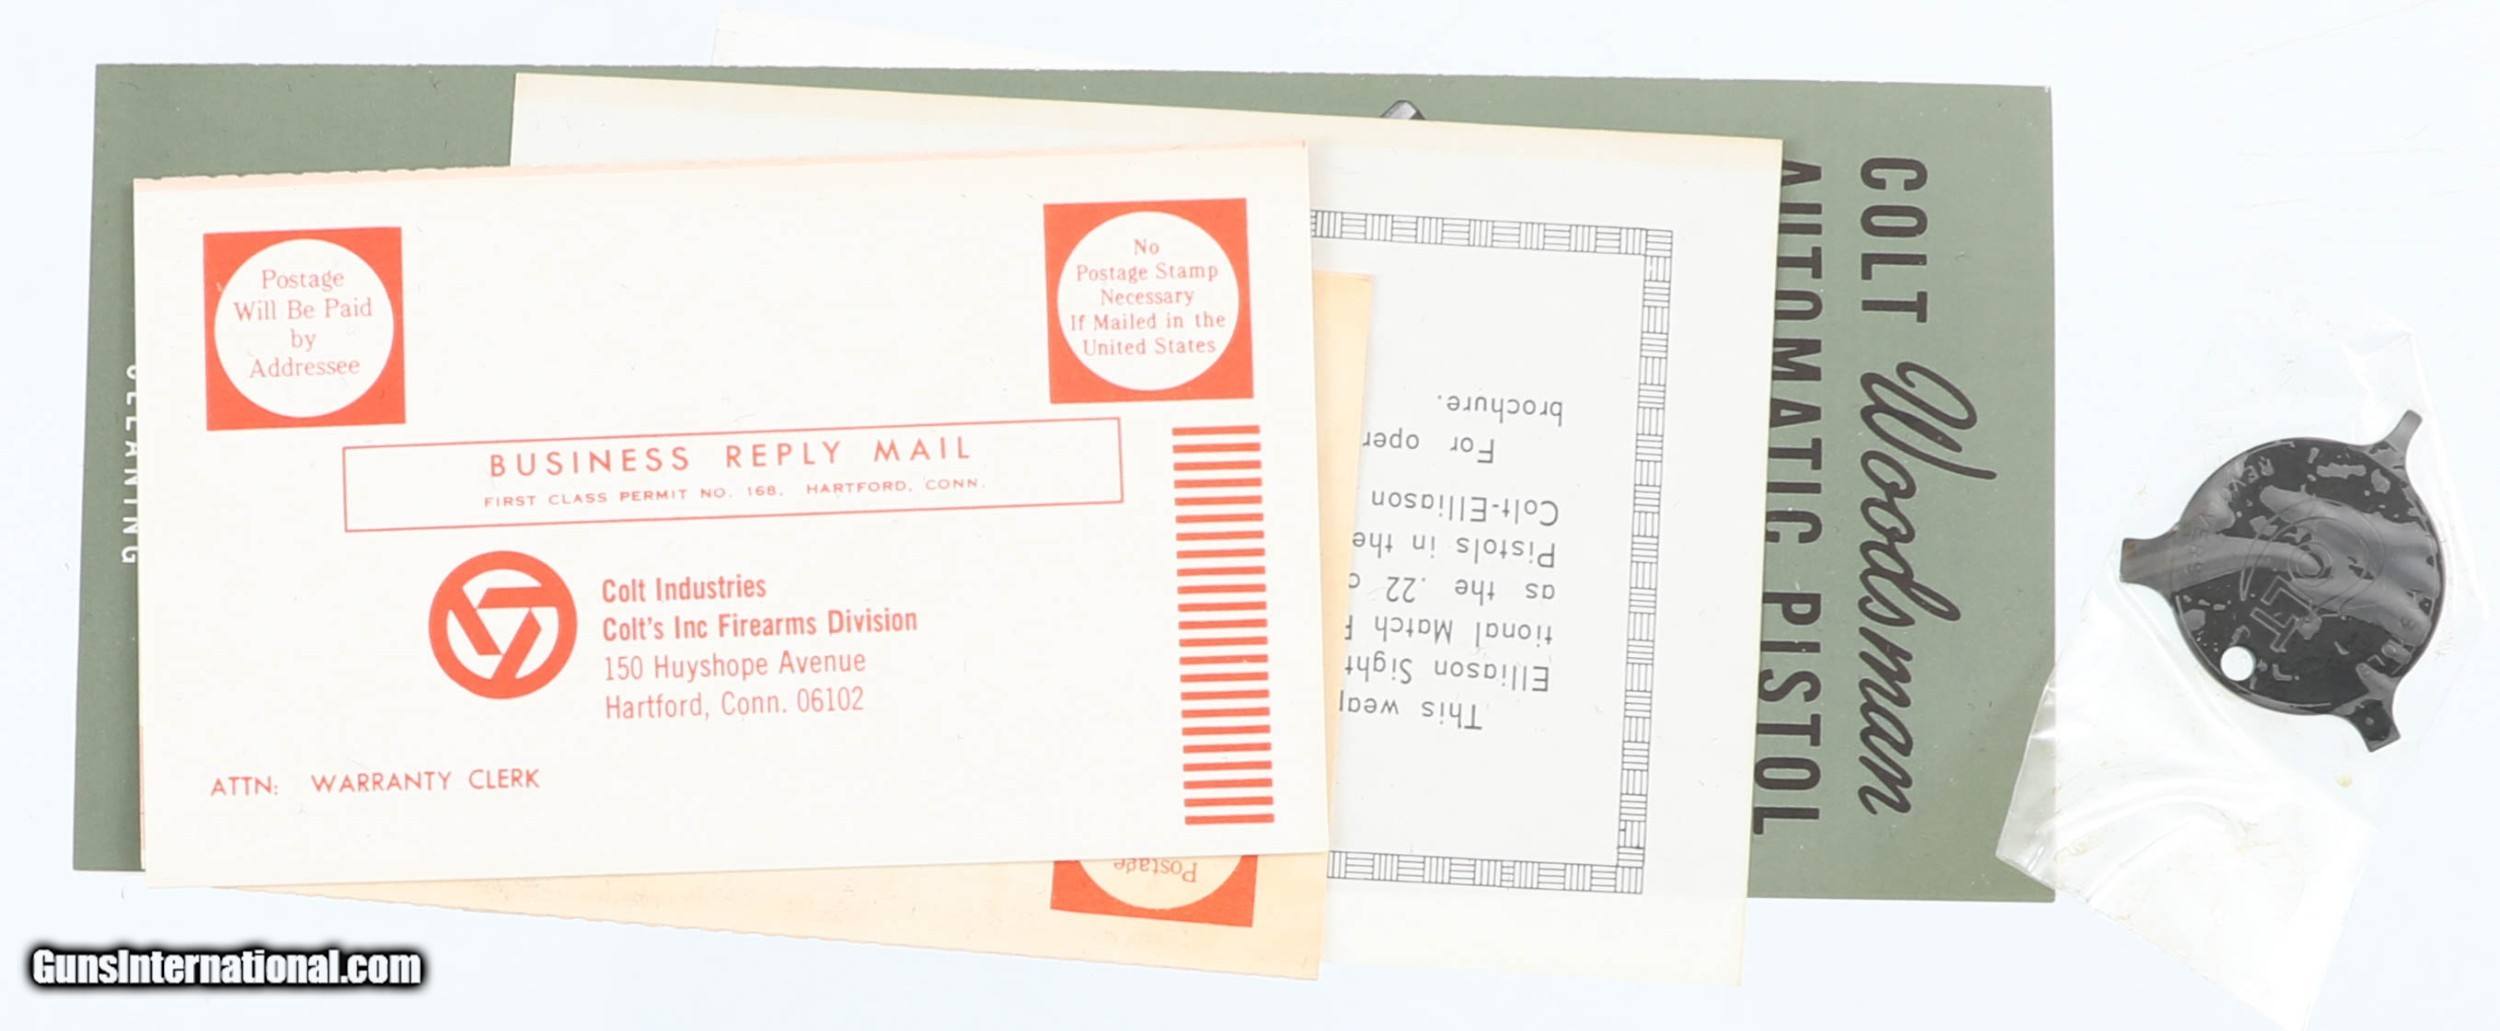 Postage
Will Be Paid
by
Addressee
No
Postage Stamp
Necessary
If Mailed in the
United States
BUSINESS REPLY MAIL
FIRST CLASS PERMIT NO. 168, HARTFORD, CONN.
Colt Industries
Colt's Inc Firearms Division
150 Huyshope Avenue
Hartford, Conn. 06102
ATTN: WARRANTY CLERK
Postage
This
Elliason Sight
tional Match
as the .22
Pistols in the
Colt-Elliason
For oper
brochure.
COLT Woodsman
AUTOMATIC PISTOL
CLEANING
GunsInternational.com